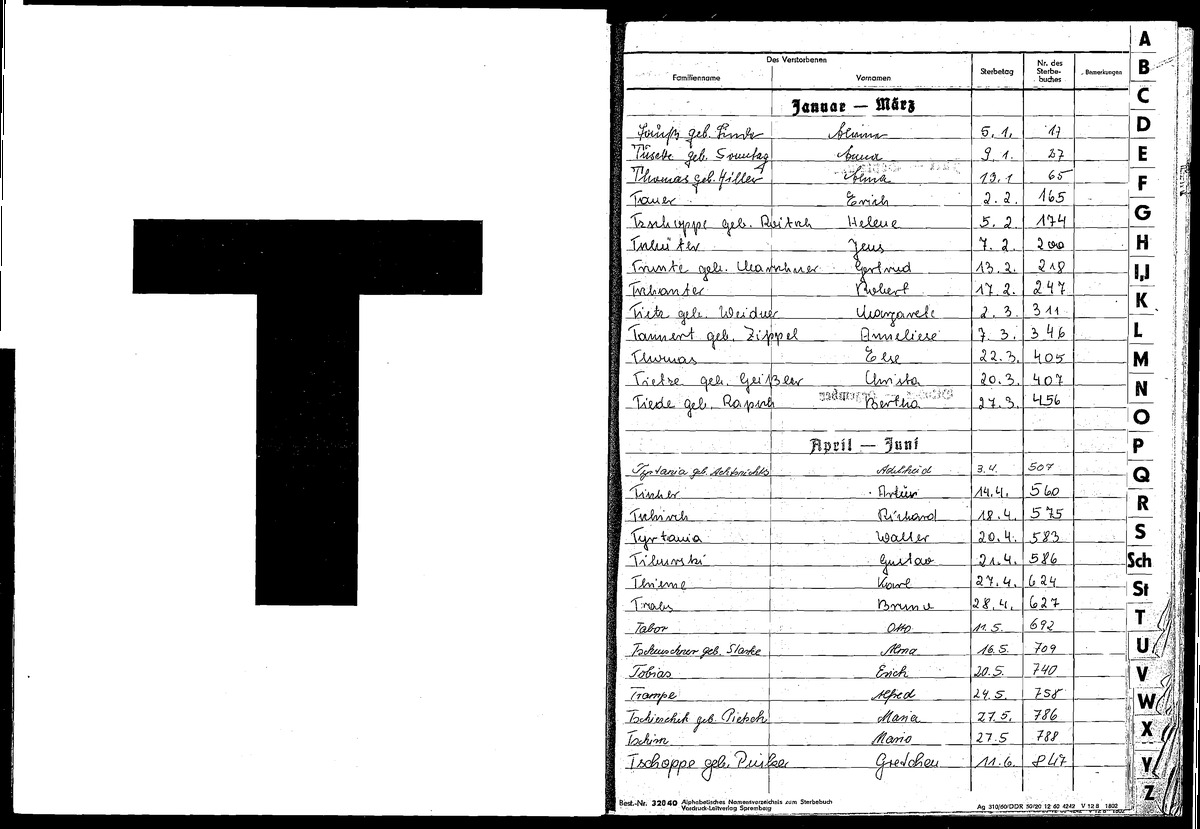 T
Des Verstorbenen
Familienname Vornamen Sterbetag Nr. des Sterbe-buches Bemerkungen
Januar — März
geb. 5. 1. 17
geb. Sonntag Anna 9. 1. 27
Thomas geb. Hiller Alma 19. 1 65
Tauer Erich 2. 2. 165
Tzschoppe geb. Reitsch Helene 5. 2. 174
Tschüter Jens 7. 2. 200
geb. Marschner Gertrud 13. 2. 218
Tschanter Robert 17. 2. 247
Tietz geb. Weidner Margarete 2. 3. 311
Tannert geb. Zippel Anneliese 7. 3. 346
Thomas Else 22. 3. 405
Tietze geb. Geißler Christa 20. 3. 407
Tiede geb. Rapsch Bertha 27. 3. 456
April — Juni
Tyrtania geb. Adelheid 3. 4. 507
Tischer Artur 14. 4. 560
Tschirch Richard 18. 4. 575
Tyrtania Walter 20. 4. 583
Gustav 21. 4. 586
Thieme Karl 27. 4. 624
Bruno 28. 4. 627
Tabor Otto 11. 5. 692
Tscheuschner geb. Starke Alma 16. 5. 709
Tobias Erich 20. 5. 740
Trampe Alfred 24. 5. 758
Tschierschek geb. Pietsch Maria 27. 5. 786
Tschirn Mario 27. 5 788
Tschoppe geb. Gretchen 11. 6. 847
Best.-Nr. 32040 Alphabetisches Namenverzeichnis zum Sterbebuch
Vordruck-Leitverlag Spremberg
Ag 310/60/DDR 50/20 12 60 4242 V 12 8 1802
A
B
C
D
E
F
G
H
I,J
K
L
M
N
O
P
Q
R
S
Sch
St
T
U
V
W
X
Y
Z